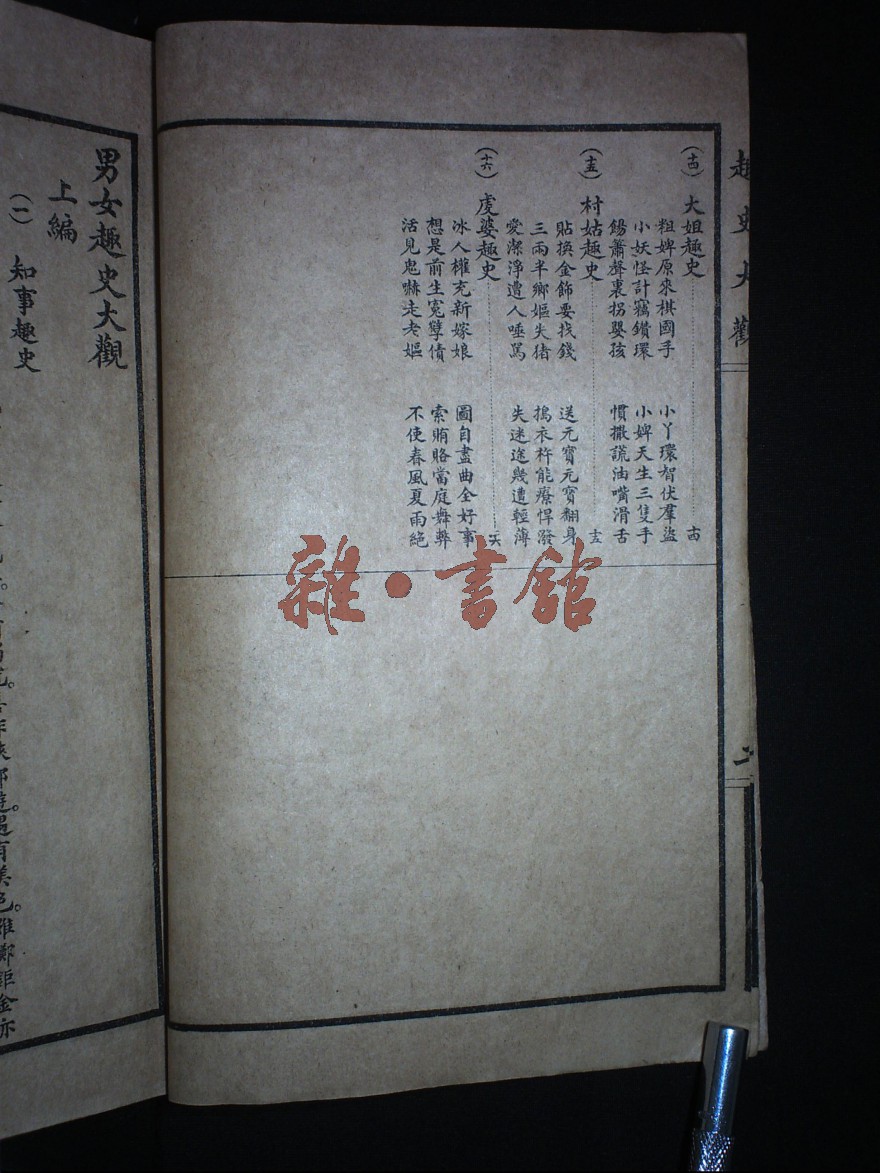 趣史大觀
二
(十四) 大姐趣史 十四
粗婢原來棋國手 小丫環智伏羣盜
小妖怪計竊鑽環 小婢天生三隻手
餳簫聲裏拐嬰孩 慣撒謊油嘴滑舌
(十五) 村姑趣史 十五
貼換金飾要找錢 送元寶元寶翻身
三兩半鄉嫗失豬 搗衣杵能療悍潑
愛潔淨遭人唾罵 失迷途幾遭輕薄
(十六) 虔婆趣史 十六
冰人權充新嫁娘 圖自盡曲全好事
想是前生寃孽債 索賄賂當庭舞弊
活見鬼嚇走老嫗 不使春風夏雨絕
雜·書館
男女趣史大觀
上編
(一) 知事趣史